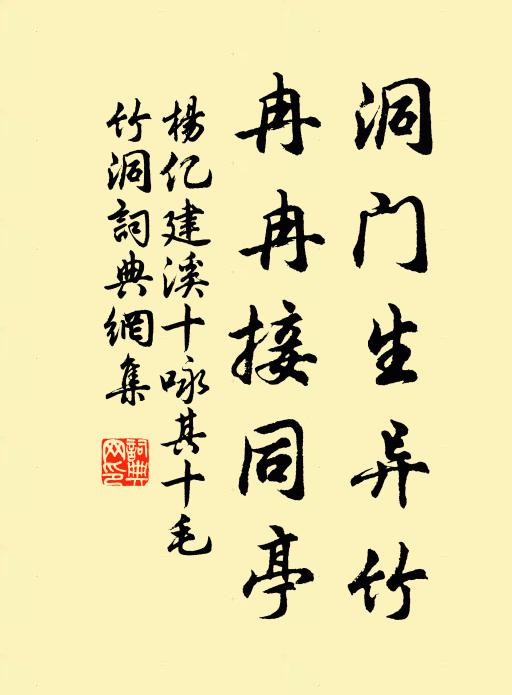 洞门生异竹
冉冉接同亭
杨亿建溪十咏其十毛
竹洞詞典網集
詞典网印